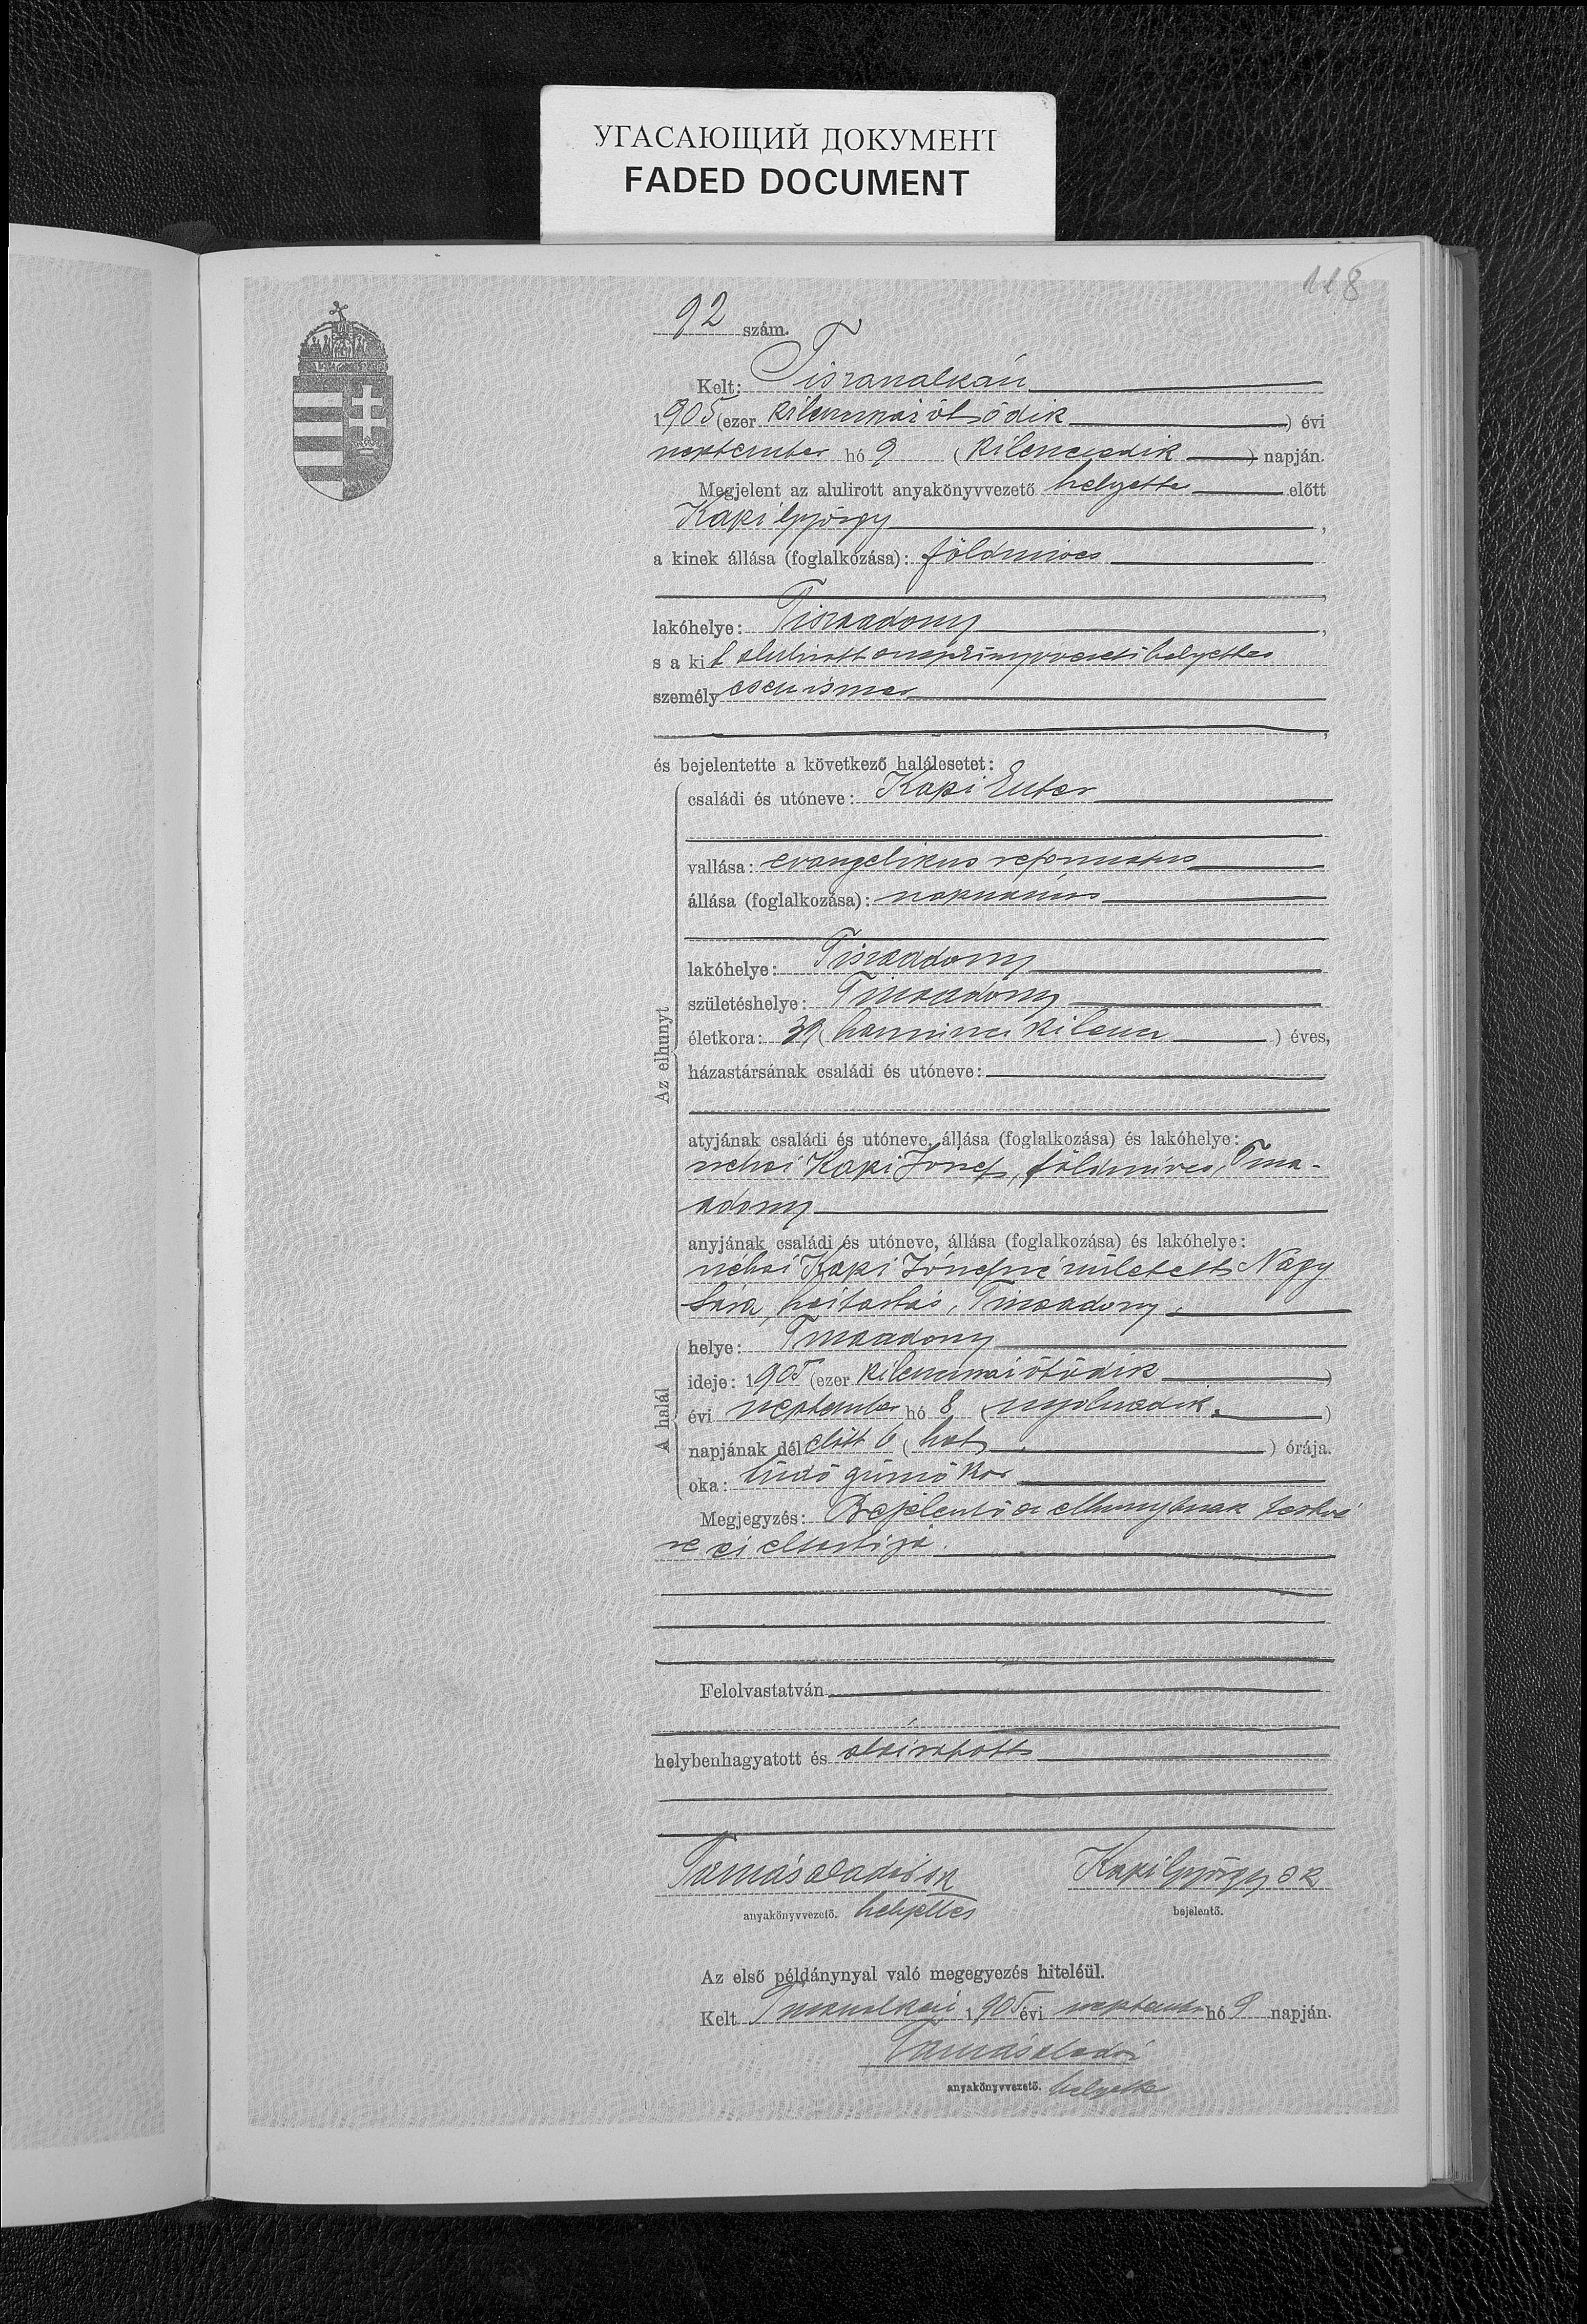 УГАСАЮЩИЙ ДОКУМЕНТ
FADED DOCUMENT
118
92 szám.
Kelt: Tiszasalkán
1905 (ezer kilencszáz ötödik) évi
szeptember hó 9 (kilencedik) napján.
Megjelent az alulirott anyakönyvvezető helyettes előtt
Kapi György,
a kinek állása (foglalkozása): földmives
lakóhelye: Tiszaadony,
s a kit alulirott anyakönyvvezető helyettes
személyesen ismer,
és bejelentette a következő halálesetet:
Az elhunyt
családi és utóneve: Kapi Eszter
vallása: evangelikus reformatus
állása (foglalkozása): napszámos
lakóhelye: Tiszaadony
születéshelye: Tiszaadony
életkora: 39 (harminczkilencz) éves,
házastársának családi és utóneve:
atyjának családi és utóneve, állása (foglalkozása) és lakóhelye:
néhai Kapi József, földmives, Tisza-
adony
anyjának családi és utóneve, állása (foglalkozása) és lakóhelye:
néhai Kapi Józsefné született Nagy
Sára, háztartás, Tiszaadony.
A halál
helye: Tiszaadony
ideje: 1905 (ezer kilencszáz ötödik)
évi szeptember hó 8 (nyolczadik)
napjának dél előtt 6 (hat) órája.
oka: tüdő gümőkór
Megjegyzés: Bejelentő az elhunytnak testvé
re és eltartója.
Felolvastatván
helybenhagyatott és aláiratott
Tamás Aladár sk Kapi György sk
anyakönyvvezető. helyettes bejelentő.
Az első példánynyal való megegyezés hiteléül.
Kelt 1905 évi szeptember hó 9 napján.
Tamás Aladár
anyakönyvvezető. helyettes